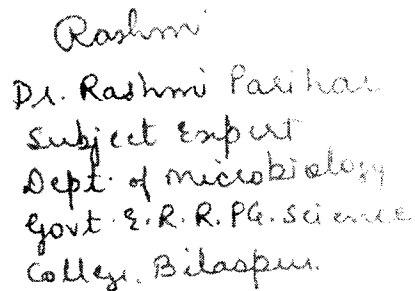 Rashmi
Dr. Rashmi Parihar
Subject Expert
Dept. of Microbiology
Govt. E. R. R. PG. Science
College. Bilaspur.